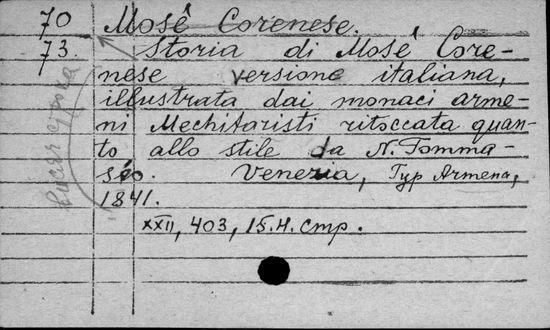 70 Mosé Corenese.
73. Storia di Mosé Core-
nese versione italiana,
illustrata dai monaci arme-
ni Mechitaristi ritoccata quan-
to allo stile da N. Tomma-
séo. Venezia, Typ Armena,
1841.
XXII, 403, 15.H. cmp.